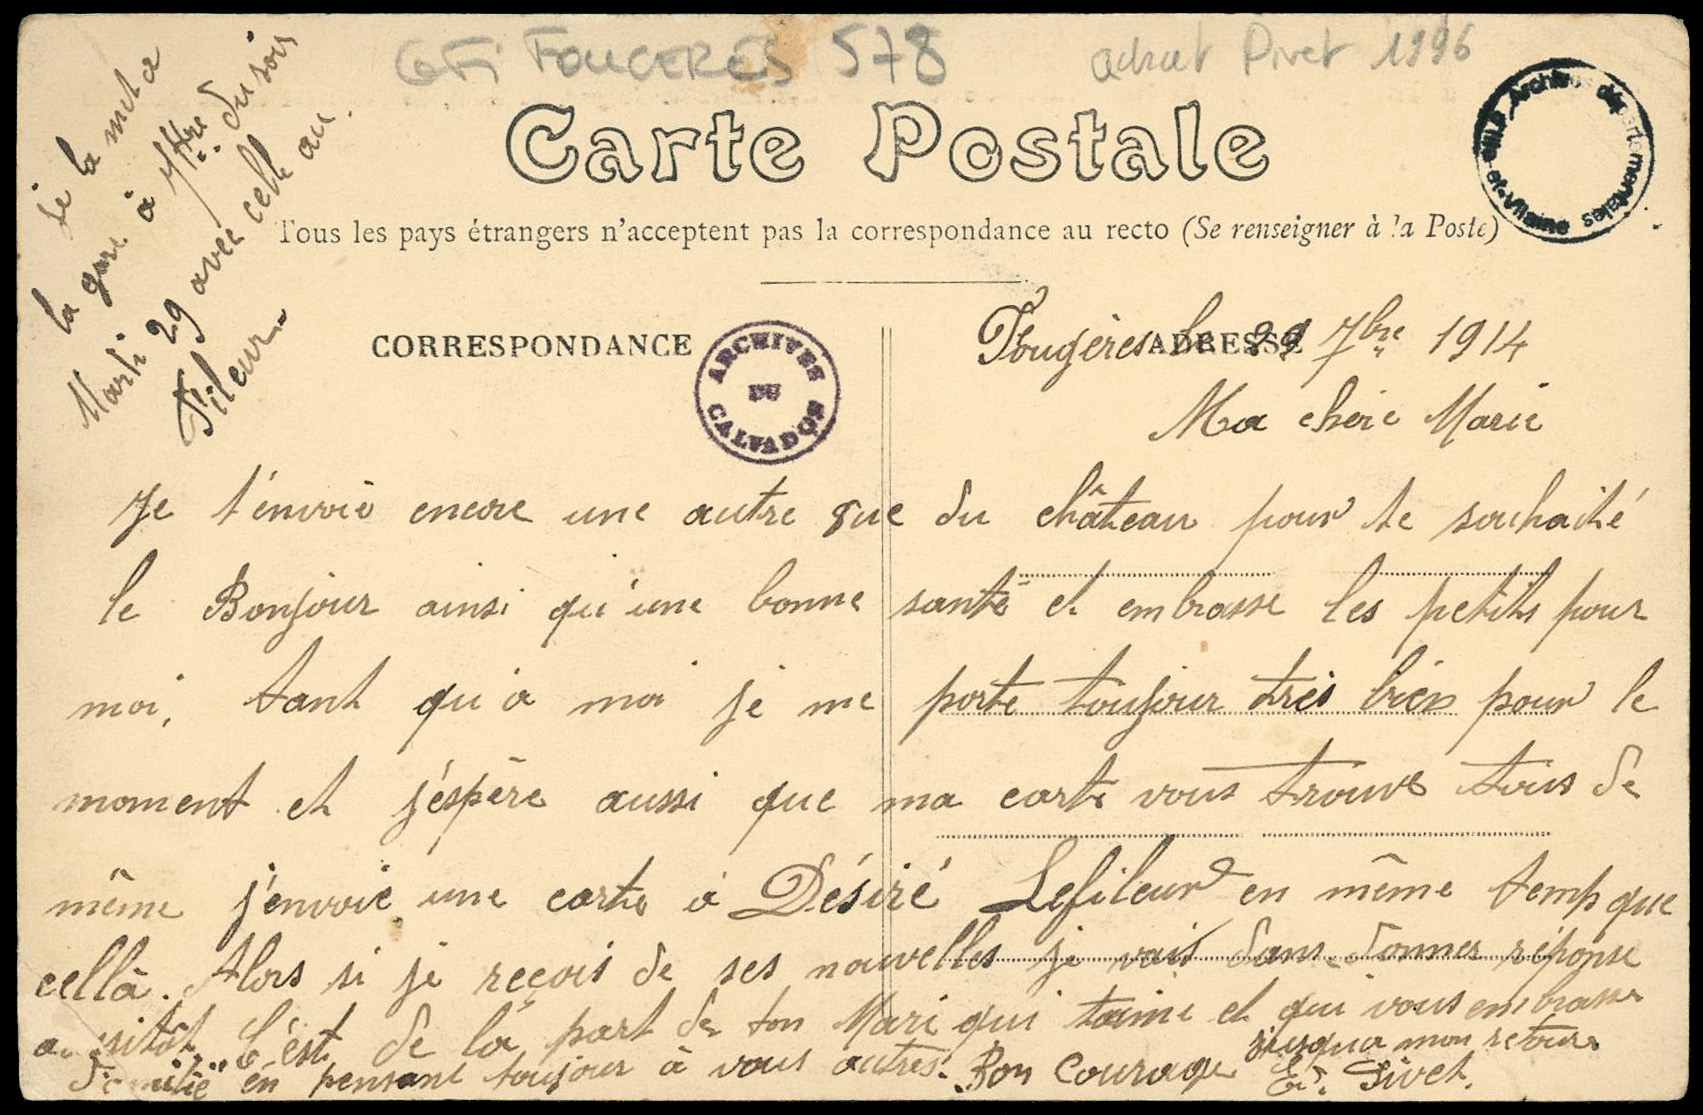 6Fi FOUGERES 578
achat Pivet 1996
Carte Postale
Tous les pays étrangers n'acceptent pas la correspondance au recto (Se renseigner à la Poste)
Archives départementales
Ille-et-Vilaine
je la met a
la gare à 7 htre du soir
Mardi 29 avec celle au
Fileur.
CORRESPONDANCE
ARCHIVES
DU
CALVADOS
ADRESSE
Fougères le 29 7bre 1914
Ma chérie Marie
Je t'envoie encore une autre vue du château pour te souhaité
le Bonjour ainsi qu'une bonne santé et embrasse les petits pour
moi, tant qu'a moi je me porte toujour très bien pour le
moment et j'éspère aussi que ma carte vous trouve tous de
même j'envoie une carte à Désiré Lefileur en même temp que
cellà. Alors si je reçois de ses nouvelles je vais dans donner réponse
aussitôt C'est de la part de ton Mari qui taime et qui vous embrasse
Famille en pensant toujour à vous autres. Bon Courage jusqua mon retour
E. Pivet.